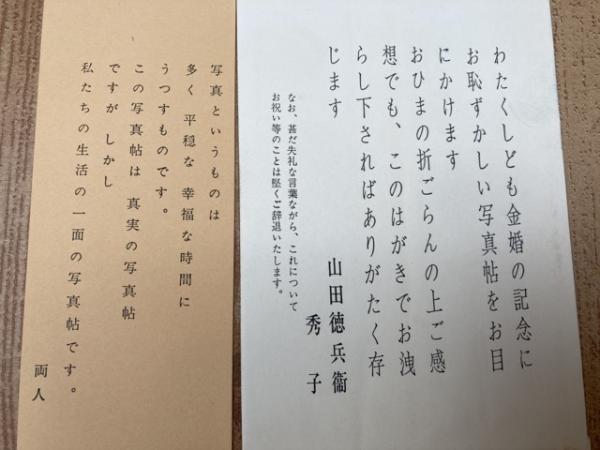 わたくしども金婚の記念に
お恥ずかしい写真帖をお目
にかけます
おひまの折ごらんの上ご感
想でも、このはがきでお洩
らし下さればありがたく存
じます
なお、甚だ失礼な言葉ながら、これについて
お祝い等のことは堅くご辞退いたします。
山田徳兵衞
秀子
写真というものは
多く 平穏な 幸福な時間に
うつすものです。
この写真帖は 真実の写真帖
ですが しかし
私たちの生活の一面の写真帖です。
両人